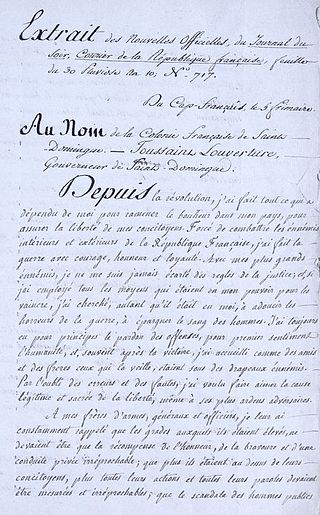 Extrait des Nouvelles Officielles, du Journal du
Soir, Courrier de la République française, feuillet
du 30 Pluviose an 10, N.° 717.
Du Cap-français, le 5 frimaire.
Au Nom de la Colonie Française de Saint-
Domingue. — Toussaint Louverture,
Gouverneur de Saint-Domingue.
Depuis la révolution, j'ai fait tout ce qui a
dépendu de moi pour ramener le bonheur dans mon pays, pour
assurer la liberté de mes concitoyens. Forcé de combattre les ennemis
intérieurs et extérieurs de la République Française, j'ai fait la
guerre avec courage, honneur et loyauté. Avec mes plus grands
ennemis, je ne me suis jamais écarté des règles de la justice; et, si
j'ai employé tous les moyens qui étaient en mon pouvoir pour les
vaincre, j'ai cherché, autant qu'il était en moi, à adoucir les
horreurs de la guerre, à épargner le sang des hommes. J'ai toujours
eu pour principes le pardon des offenses, pour premier sentiment
l'humanité, et, souvent après la victoire, j'ai accueilli comme des amis
et des frères ceux qui la veille, étaient sous des drapeaux ennemis.
Par l'oubli des erreurs et des fautes, j'ai voulu faire aimer la cause
légitime et sacrée de la liberté, même à ses plus ardens adversaires.
A mes frères d'armes, généraux et officiers, je leur ai
constamment rappelé que les grades auxquels ils étaient élevés, ne
devaient être que la récompense de l'honneur, de la bravoure et d'une
conduite privée irréprochable; que plus ils étaient au dessus de leurs
concitoyens, plus toutes leurs actions et toutes leurs paroles devaient
être mesurées et irréprochables; que le scandale des hommes publics